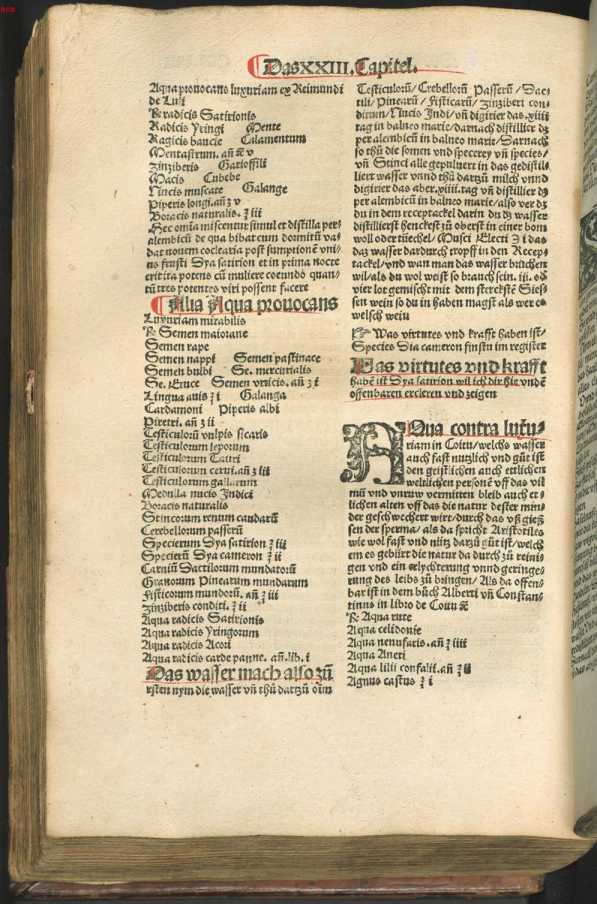 Das XXIII. Capitel.
Aqua ꝓuocans luxuriam ex Reimundi
de Luli
℞ radicis Satirionis
Radicis yringi Mente
Ragicis baucie Calamentum
Mentastrum. añ ʒ v
zinziberis Gariofili
Macis Cubebe
Nucis muscate Galange
Piperis longi. añ ʒ v
Boracis naturalis. ʒ iii
Hec omĩa misceantur simul et distilla per
alembicũ de qua bibat cum dormitũ va-
dat nouem coclearia post sumptionẽ vni-
us frusti Dya satirion et in prima nocte
erit ita potẽs cũ muliere coeundo quan-
tũ tres potentes viri possent facere
Alia Aqua prouocans
Luxuriam mirabilis
℞ Semen maiorane
Semen rape
Semen nappi Semen pastinace
Semen bulbi Se. mercurialis
Se. Eruce Semen vrticis. añ ʒ i
Lingua auis ʒ i Galanga
Cardamoni Piperis albi
Piretri. añ ʒ ii
Testiculorũ vulpis sicaris
Testiculorum leporum
Testiculorum Tauri
Testiculorum cerui. añ ʒ iii
Testiculorum gallarum
Medulla nucis Indice
Boracis naturalis
Stincorum renum caudarũ
Cerebellorum passerũ
Specierum Dya satirion ʒ iii
Specierũ Dya cameron ʒ ii
Carniũ Dactilorum mundatorũ
Granorum Pinearum mundarum
Fisticorum mundorũ. añ ʒ iii
zinziberis conditi. ʒ ii
Aqua radicis Satirionis
Aqua radicis Yringorum
Aqua radicis Acori
Aqua radicis carde panne. añ. lib. i
Das wasser mach also zũ
ersten nym die wasser vñ thũ dartzũ oim
Testiculorũ/ Crebellorũ Passerũ/ Dac-
tili/ Pinearũ/ Fisticarũ/ Zinziberi con-
ditum/ Nucis Indi/ vñ digirier das .xiiii
tag in balneo marie/ darnach distillier dz
per alembicũ in balneo marie/ Darnach
so thũ die somen vnd specerey vñ species/
vñ Stinci alle gepuluert in das gedistil-
liert wasser vnnd thũ dartzũ milch vnnd
digirier das aber .xiiii. tag vñ distillier dz
per alembicũ in balneo marie/ also ver dz
du in dem receptackel darin du dz wasser
distillierst henckest zũ oberst in einer bom
woll oder tüechel/ Musci Electi ʒ i das
daz wasser dardurch tropff in den Recep-
tackel/ vnd wan man das wasser bruchen
wil/ als du wol weist so bruch sein. iii. od
vier lot gemischt mit dem sterckstẽ Sies-
sen wein so du in haben magst als wer es
welsch wein
☞ Was virtutes vnd krafft haben ist/
Species Dia cameron finstu im register
Was virtutes vnd krafft
haben ist Dya satirion wil ich dir hie vndẽ
offenbaren ercleren vnd zeigen
AQua contra luxu-
riam in Coitu/ welchs wasser
auch fast nutzlich vnd gůt ist
den geistlichen auch ettlichen
weltlichen personẽ vff das vil
mũ vnd vnruw vermitten bleib auch et-
lichen alten vff das die natur dester min
der geschwechert wirt/ durch das vß gieß
sen der sperma/ als da spricht Aristotiles
wie wol fast vnd nütz dartzũ gůt ist/ welch
em es gebürt die natur da durch zũ reini-
gen vnd ein erlychterung vnnd geringe-
rung des leibs zũ bringen/ Als da offen-
bar ist in dem bůch Alberti vñ Constan-
tinus in libro de Coitu ⁊c
℞ Aqua rute
Aqua celidonie
Aqua nenufaris. añ ʒ iiii
Aqua Aneti
Aqua lilii confalii. añ ʒ ii
Agnus castus ʒ i